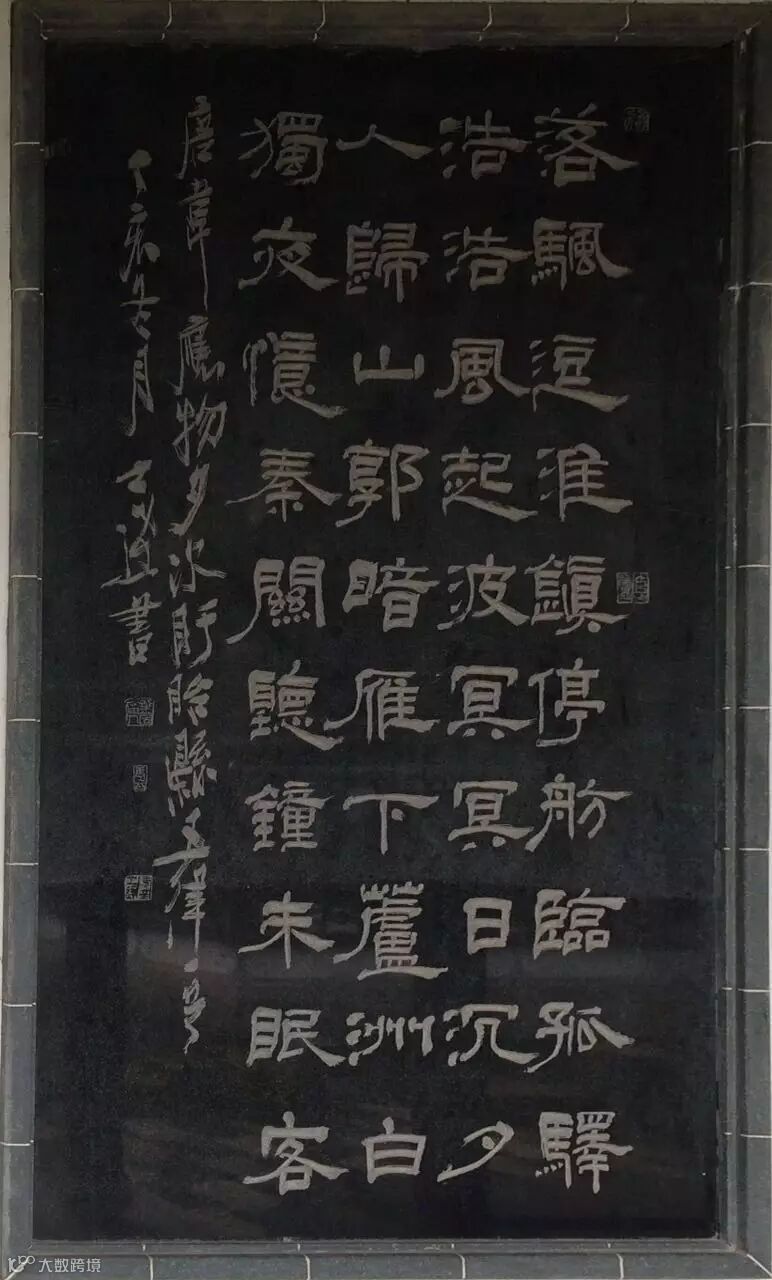 落颿逗淮鎮停舫臨孤驛
浩浩風起波冥冥日沉夕
人歸山郭暗雁下蘆洲白
獨夜憶秦關聽鐘未眠客
唐韋應物夕次盱眙縣五律一首
丁亥月書
大数跨境